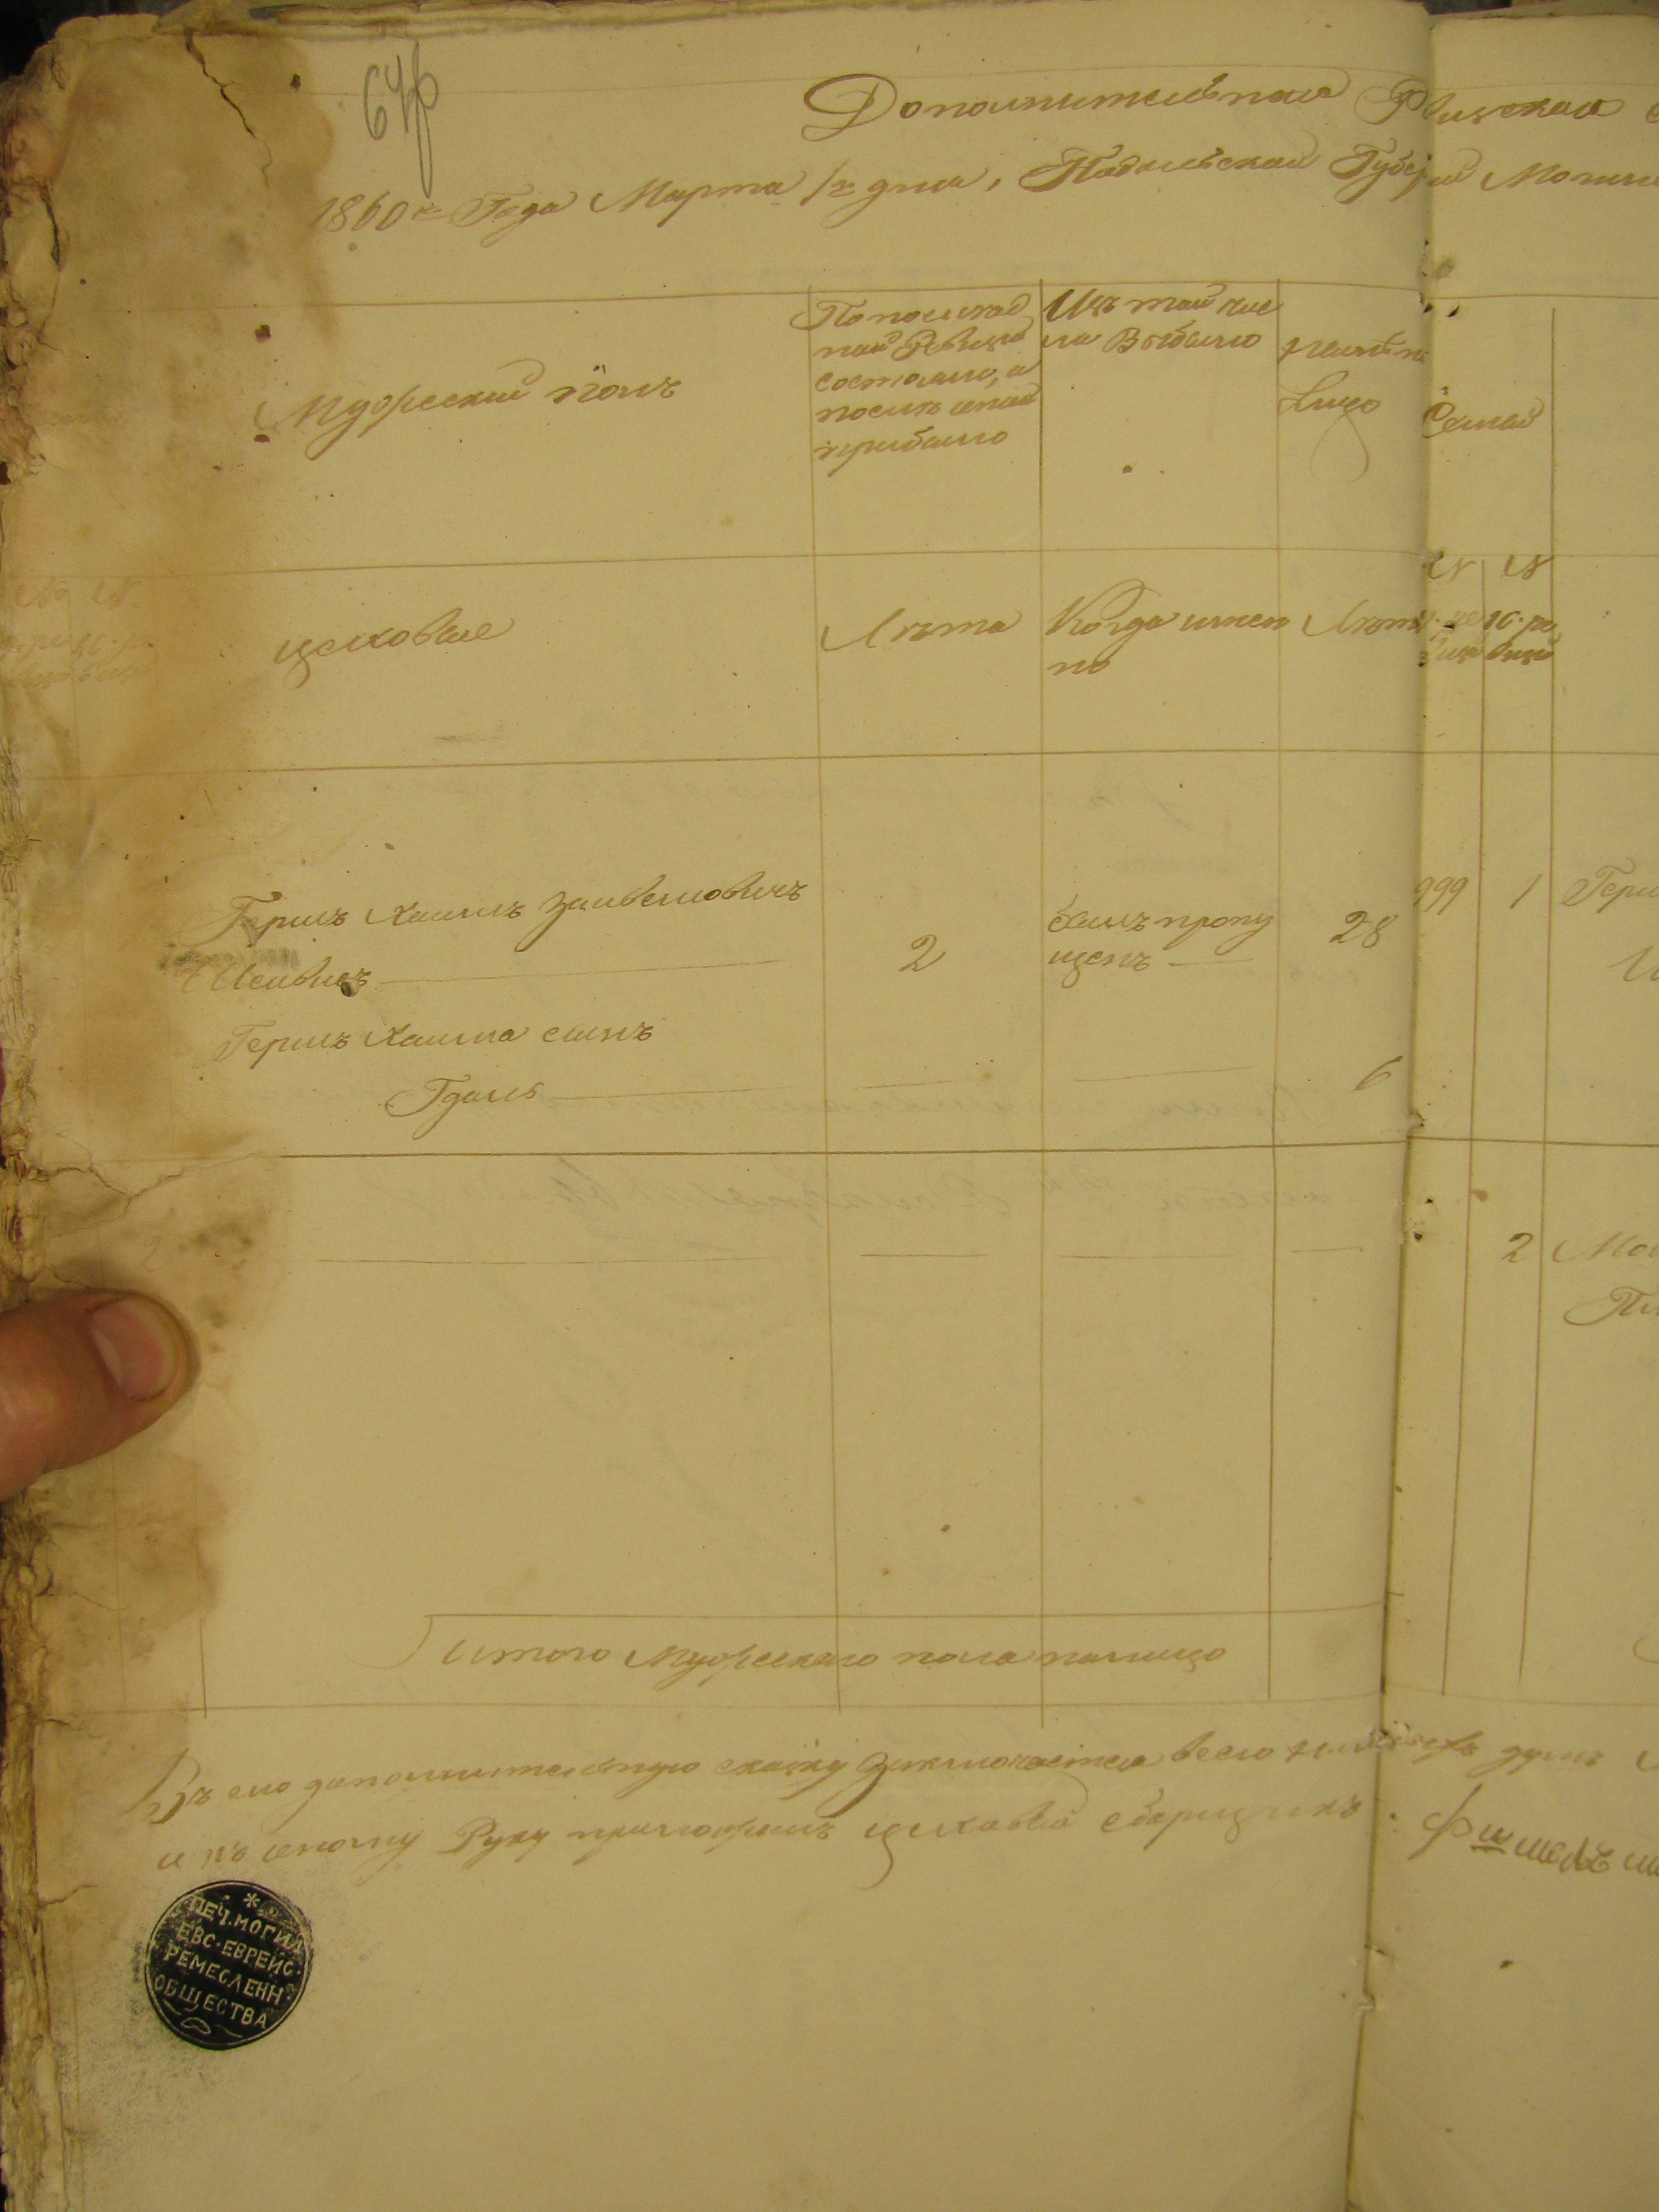 Дополнительная Ревизская
1860го Года Марта 1го дня, Подольской Губернии
Мужеский полъ
По послѣд
ней Ревизіи
состояло, и
послѣ оной
прибыло
Изъ того чис
ла Выбыло
Нынѣ на
Лицо
Семьи
цеховые
Лѣта
Когда имен
но
Лѣта
№ №
10. ре
визіи
Гершъ Хаимъ Зайвеловичъ
2
былъ пропу
щенъ
28
999 1
Гершъ Хаима сынъ
Гдаль
6
2
Итого Мужескаго пола налицо
Въ сію дополнительную сказку заключается всего душъ
и къ оному Руку приложилъ цеховый сборщикъ: Фишель
ПЕЧ. МОГИЛ
ЕВС. ЕВРЕЙС.
РЕМЕСЛЕНН.
ОБЩЕСТВА